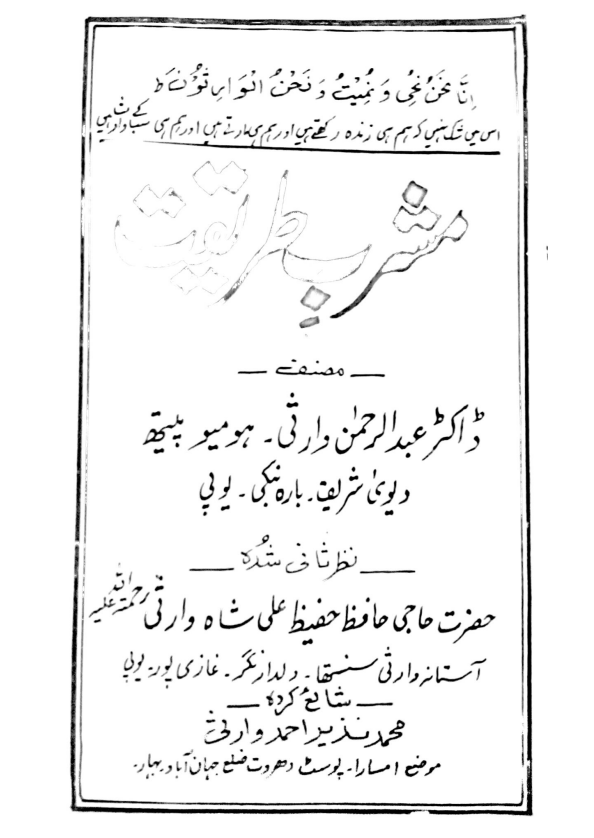 اِنَّا نَحْنُ نُحْیِ وَ نُمِیْتُ وَ نَحْنُ الْوَارِثُوْنَ ط
اس میں شک نہیں کہ ہم ہی زندہ رکھتے ہیں اور ہم ہی مارتے ہیں اور ہم ہی سب کے وارث ہیں
مشربِ طریقت
— مصنف —
ڈاکٹر عبدالرحمٰن وارثی۔ ہومیو پیتھ
دیویٰ شریف۔ بارہ بنکی۔ یوپی
— نظر ثانی شدہ —
حضرت حاجی حافظ حفیظ علی شاہ وارثی رحمۃ اللہ علیہ
آستانہ وارثی سنستھا۔ دلدار نگر۔ غازی پور۔ یوپی
— شائع کردہ —
محمد نذیر احمد وارثی
موضع امسارا۔ پوسٹ دھروت ضلع جہان آباد بہار۔